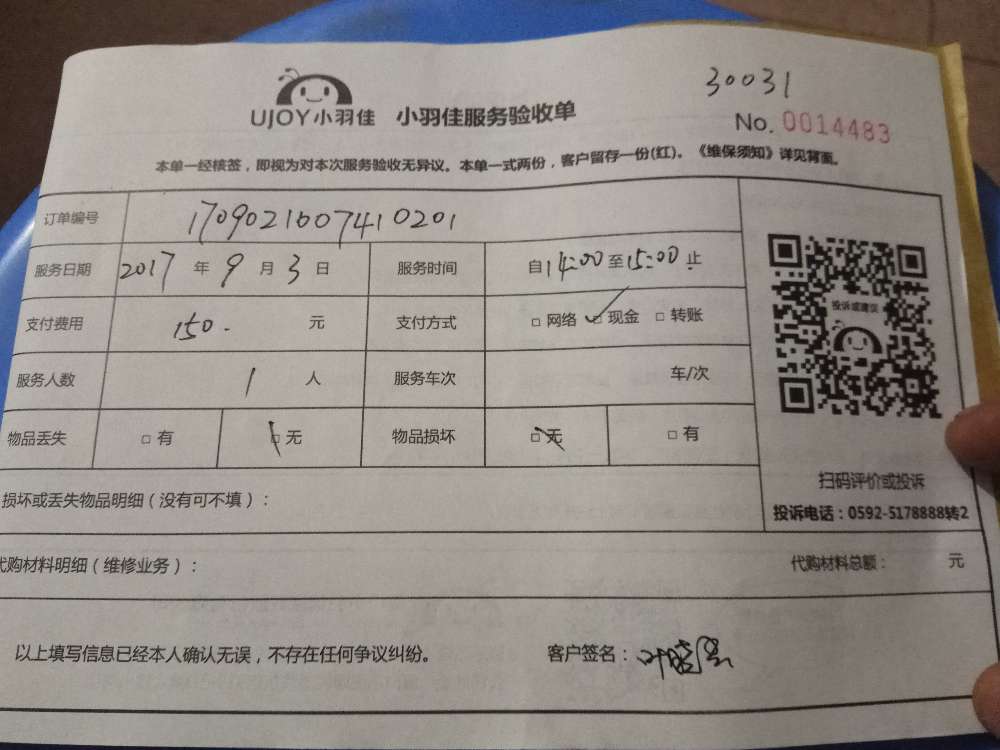 30031
UJOY小羽佳 小羽佳服务验收单
No. 0014483
本单一经核签，即视为对本次服务验收无异议。本单一式两份，客户留存一份(红)。《维保须知》详见背面。
订单编号 1709021607410201
服务日期 2017 年 9 月 3 日 服务时间 自 14:00 至 15:00 止
支付费用 150. 元 支付方式 □ 网络 □ 现金 □ 转账
服务人数 1 人 服务车次 车/次
物品丢失 □ 有 □ 无 物品损坏 □ 无 □ 有
投诉或建议
扫码评价或投诉
投诉电话：0592-5178888转2
损坏或丢失物品明细（没有可不填）：
代购材料明细（维修业务）： 代购材料总额： 元
以上填写信息已经本人确认无误，不存在任何争议纠纷。 客户签名：